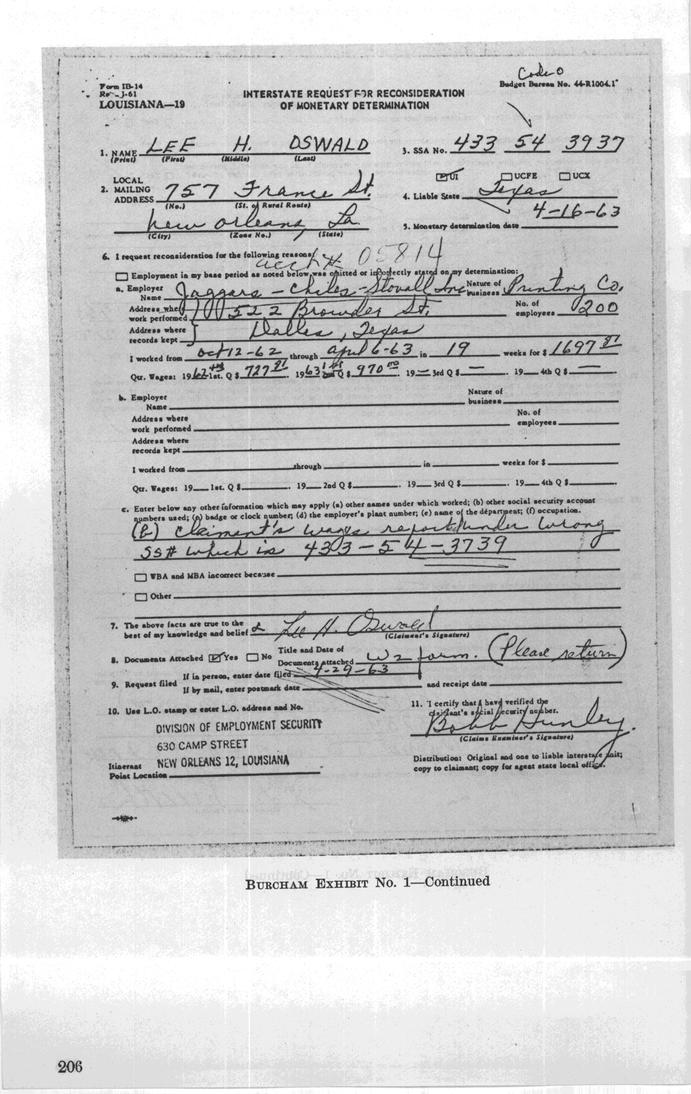 Code 0
Form IB-14
Budget Bureau No. 44-R1004.1
LOUISIANA—19
INTERSTATE REQUEST FOR RECONSIDERATION
OF MONETARY DETERMINATION
1. NAME LEE H. OSWALD 3. SSA No. 433 54 3937
(Print) (First) (Middle) (Last)
UI UCFE UCX
LOCAL
2. MAILING ADDRESS 757 France St. 4. Liable State Texas
(No.) (St. or Rural Route)
New Orleans, La 5. Monetary determination date 4-16-63
(City) (Zone No.) (State)
6. I request reconsideration for the following reasons: acct # 05814
Employment in my base period as noted below was omitted or incorrectly stated on my determination:
a. Employer Name Jaggars-Chiles-Stovall Inc Nature of business Printing Co.
Address where work performed 522 Browder St. No. of employees 200
Address where records kept Dallas, Texas
I worked from Oct 12-62 through April 6-63 in 19 weeks for $ 1697 81
Qtr. Wages: 1962 4th 1st. Q $ 727 81 1963 1st 2nd Q $ 970 00 19— 3rd Q $ — 19 4th Q $ —
b. Employer Name Nature of business
Address where work performed No. of employees
Address where records kept
I worked from through in weeks for $
Qtr. Wages: 19 1st. Q $ 19 2nd Q $ 19 3rd Q $ 19 4th Q $
c. Enter below any other information which may apply (a) other names under which worked; (b) other social security account
numbers used; (c) badge or clock number; (d) the employer's plant number; (e) name of the department; (f) occupation.
(b) Claimant's wages report under wrong
SS# which is 433-54-3739
WBA and MBA incorrect because
Other
7. The above facts are true to the best of my knowledge and belief Lee H. Oswald
(Claimant's Signature)
8. Documents Attached Yes No Title and Date of Documents attached W2 form. (Please return)
9. Request filed If in person, enter date filed 4-29-63
If by mail, enter postmark date and receipt date
10. Use L.O. stamp or enter L.O. address and No.
11. I certify that I have verified the claimant's social security number.
DIVISION OF EMPLOYMENT SECURITY
Bobb Hunley.
630 CAMP STREET
(Claims Examiner's Signature)
NEW ORLEANS 12, LOUISIANA
Itinerant Point Location
Distribution: Original and one to liable interstate unit;
copy to claimant; copy for agent state local office.
BURCHAM EXHIBIT No. 1—Continued
206